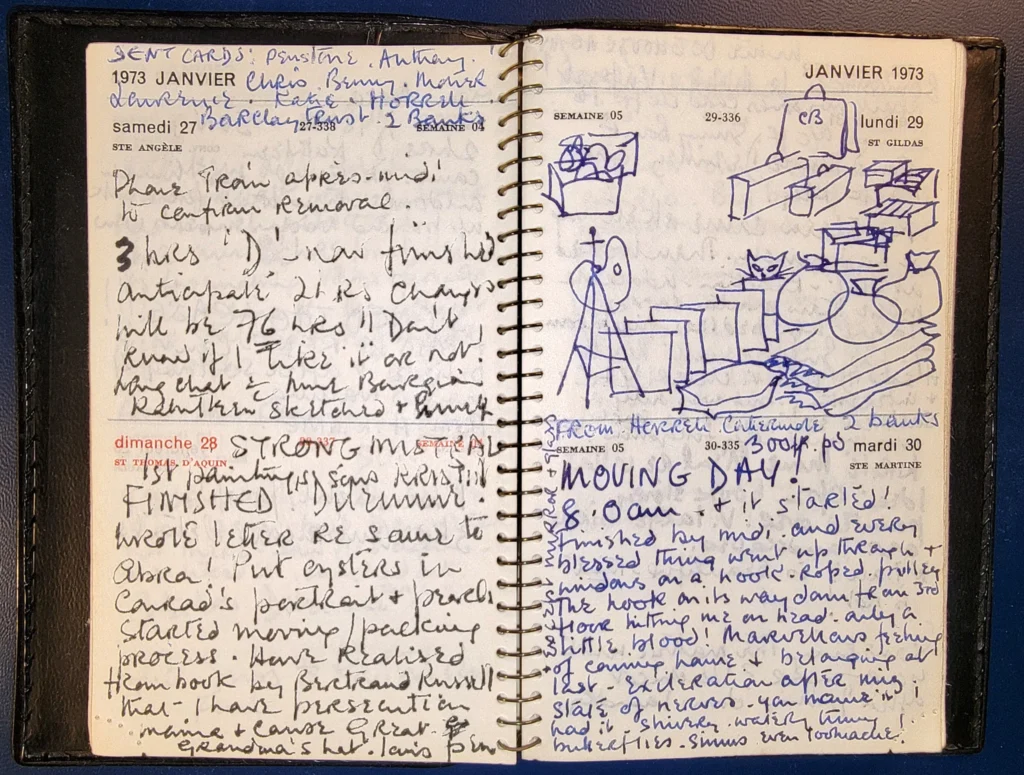 SENT CARDS: Penstone. Anthony.
1973 JANVIER Chris. Benny. Mover
Lawrence. Katie. HORRELL
Barclay Trust. 2 Banks
samedi 27 27-338 SEMAINE 04
STE ANGÈLE
Phone Train après-midi
to confirm removal
3 hrs 'D' - now finished
anticipate 2 hrs changes
will be 76 hrs !! Don't
know if I like it or not.
Long chat &
sketched +
dimanche 28 STRONG
ST THOMAS D'AQUIN
1st painting
FINISHED
wrote letter re same to
Abra! Put oysters in
Conrad's portrait + pearls
started moving/packing
process. Have realised
from book by Bertrand Russell
that - I have persecution
mania + cause Great-
Grandma's hat.
JANVIER 1973
SEMAINE 05 29-336 lundi 29
ST GILDAS
CB
FROM: Horrell 2 banks
SEMAINE 05 30-335 300 mardi 30
STE MARTINE
MOVING DAY.
8.0am. + it started!
finished by midi. and every
blessed thing went up through +
windows on a hook. Roped. pulley
The hook on its way down from 3rd
floor hitting me on head. only a
little blood! Marvellous feeling
of coming home + belonging at
last - exileration after my
state of nerves. you name it I
had it. shivery. watery tummy!
butterflies. Sinus even toothache!